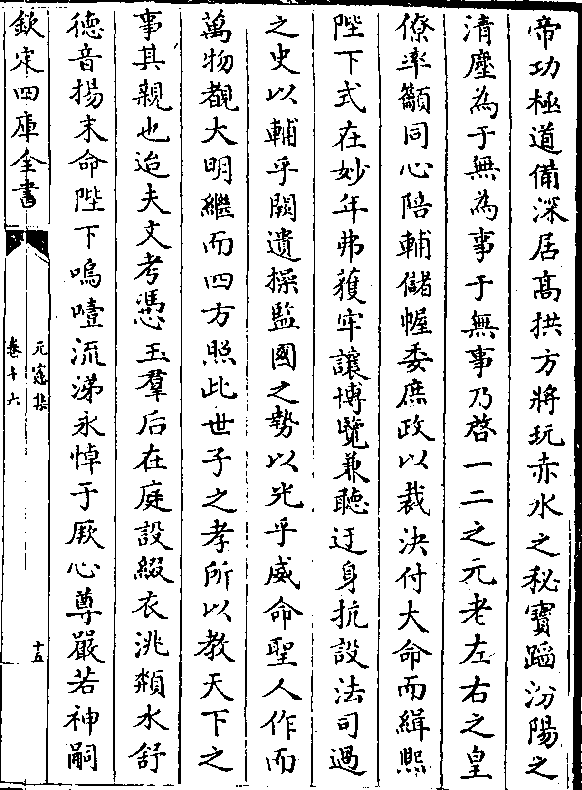 帝功極道備深居髙拱方將玩赤水之秘寶蹈汾陽之
清塵為于無為事于無事乃啓一二之元老左右之皇
僚率籲同心陪輔儲幄委庶政以裁決付大命而緝熙
陛下式在妙年弗獲牢讓博覽兼聽迂身抗設法司過
之史以輔乎闕遺操監國之勢以光乎威命聖人作而
萬物覩大明繼而四方照此世子之孝所以教天下之
事其親也迨夫文考憑玉羣后在庭設綴衣洮頮水舒
徳音揚末命陛下嗚噎流涕永悼于厥心尊嚴若神嗣
欽定四庫全書
元憲集
卷十六
十五